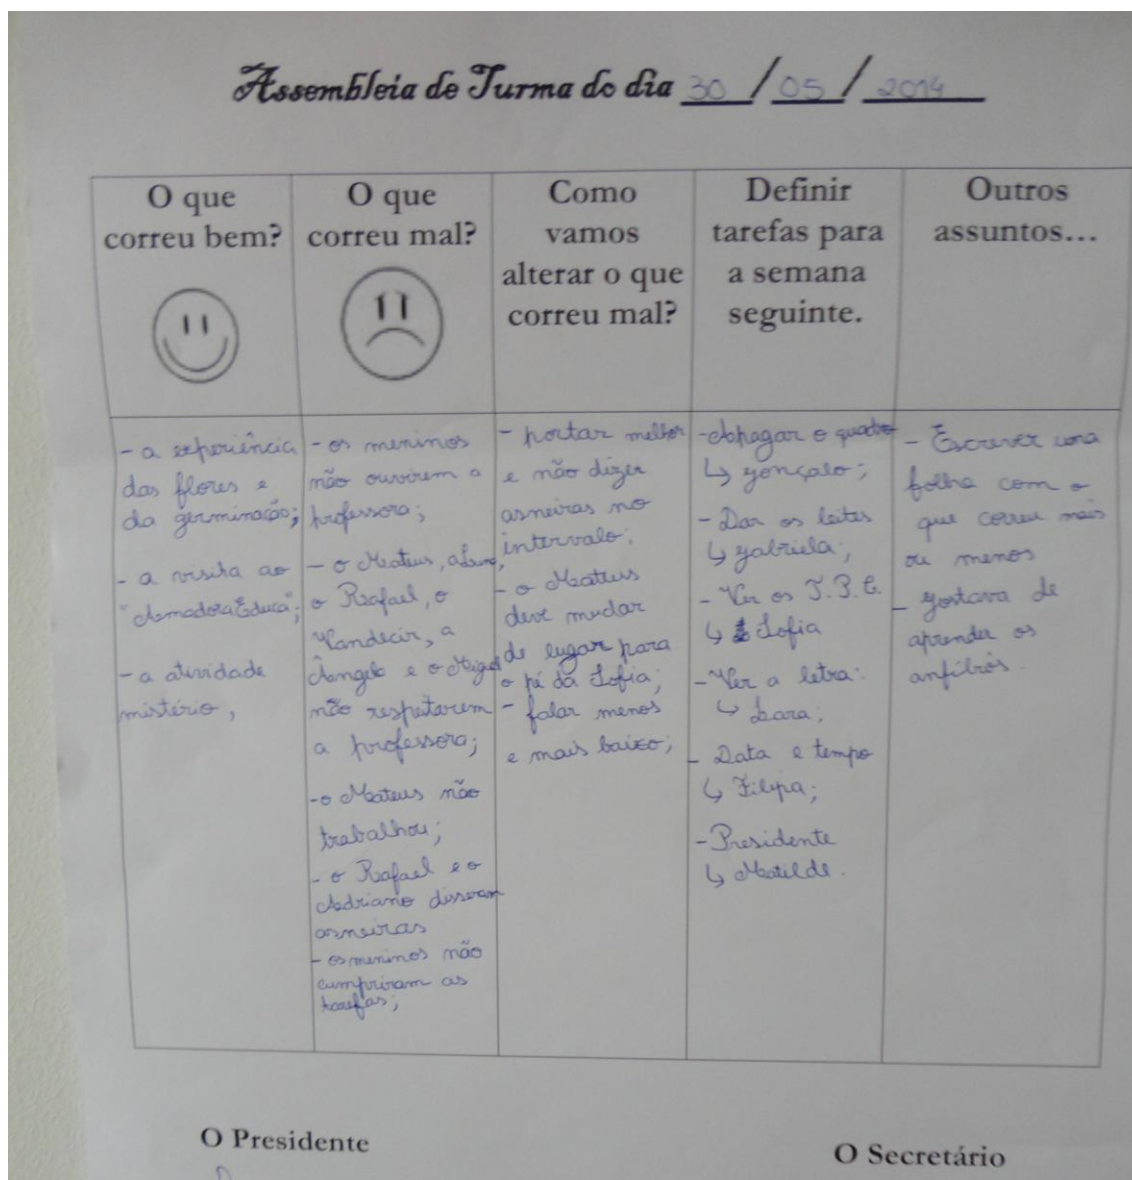 Assembleia de Turma do dia 30/05/2014
O que
correu bem?
O que
correu mal?
Como
vamos
alterar o que
correu mal?
Definir
tarefas para
a semana
seguinte.
Outros
assuntos...
- a experiência
das flores e
da germinação;
- a visita ao
"AmadoraEduca";
- a atividade
mistério,
- os meninos
não ouvirem a
professora;
- o Mateus, a
o Rafael, o
Vandecir, a
Ângela e o Miguel
não respeitarem
a professora;
- o Mateus não
trabalhou;
- o Rafael e o
Adriano disseram
asneiras
- os meninos não
cumpriram as
tarefas;
- portar melhor
e não dizer
asneiras no
intervalo;
- o Mateus
deve mudar
de lugar para
o pé da Sofia;
- falar menos
e mais baixo;
- Apagar o quadro
↳ Gonçalo;
- Dar os leites
↳ Gabriela;
- Ver os T.P.C.
↳ Sofia
- Ver a letra:
↳ Lara;
- Data e tempo
↳ Filipa;
- Presidente
↳ Matilde.
- Escrever uma
folha com o
que correu mais
ou menos
- gostava de
aprender os
anfíbios.
O Presidente
O Secretário